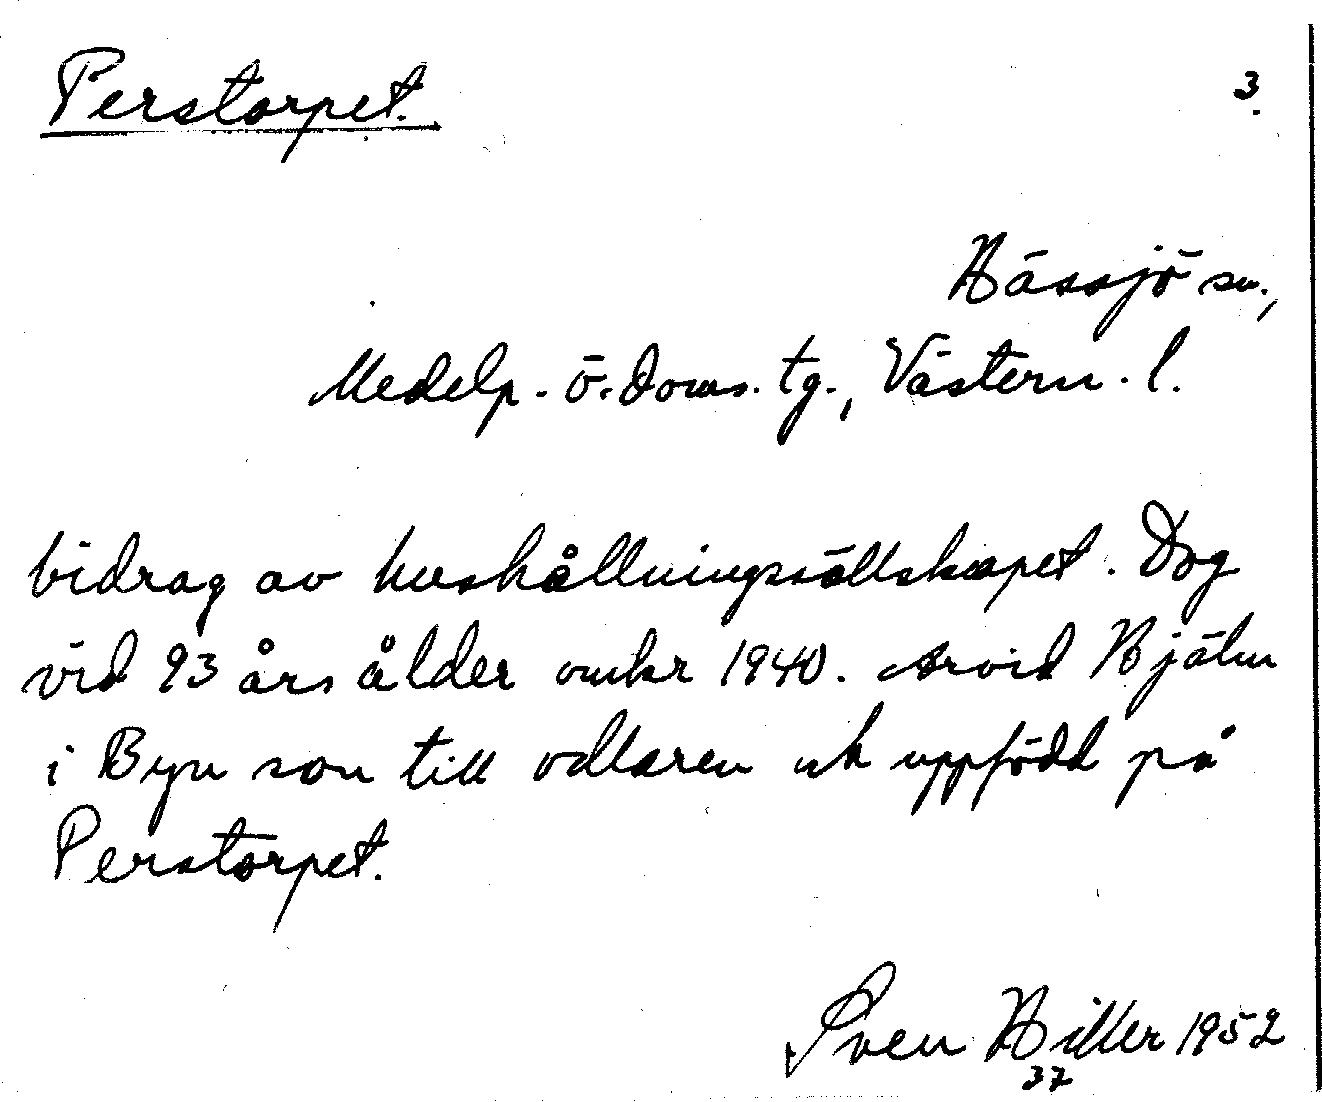 Perstorpet.
3.
Hässjö sn.,
Medelp. ö. doms. tg., Västern. l.
bidrag av hushållningssällskapet. Dog
vid 93 års ålder omkr 1940. Arvid Hjälm
i Byn son till odlaren och uppfödd på
Perstorpet.
Sven Hiller 1952
37